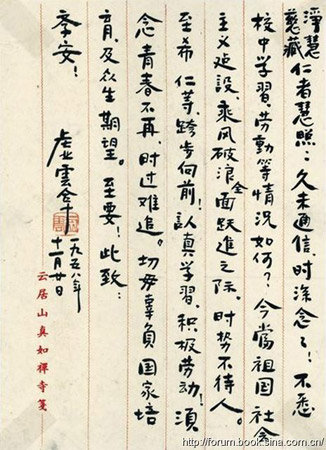 淨慧
慈藏
仁者慧照:久未通信,时深念之!不悉
校中学習、劳動等情况如何?今當祖国社会
主义建設,乘风破浪全面跃進之际,时势不待人。
至希 仁等,跨步向前!认真学習,积极劳动!須
念青春不再,时过难追。切毋辜負国家培
育,及众生期望。至要!此致:
季安!
虚雲合十
一九五八年
十一月廿日
云居山真如禅寺笺
http://forum.book.sina.com.cn